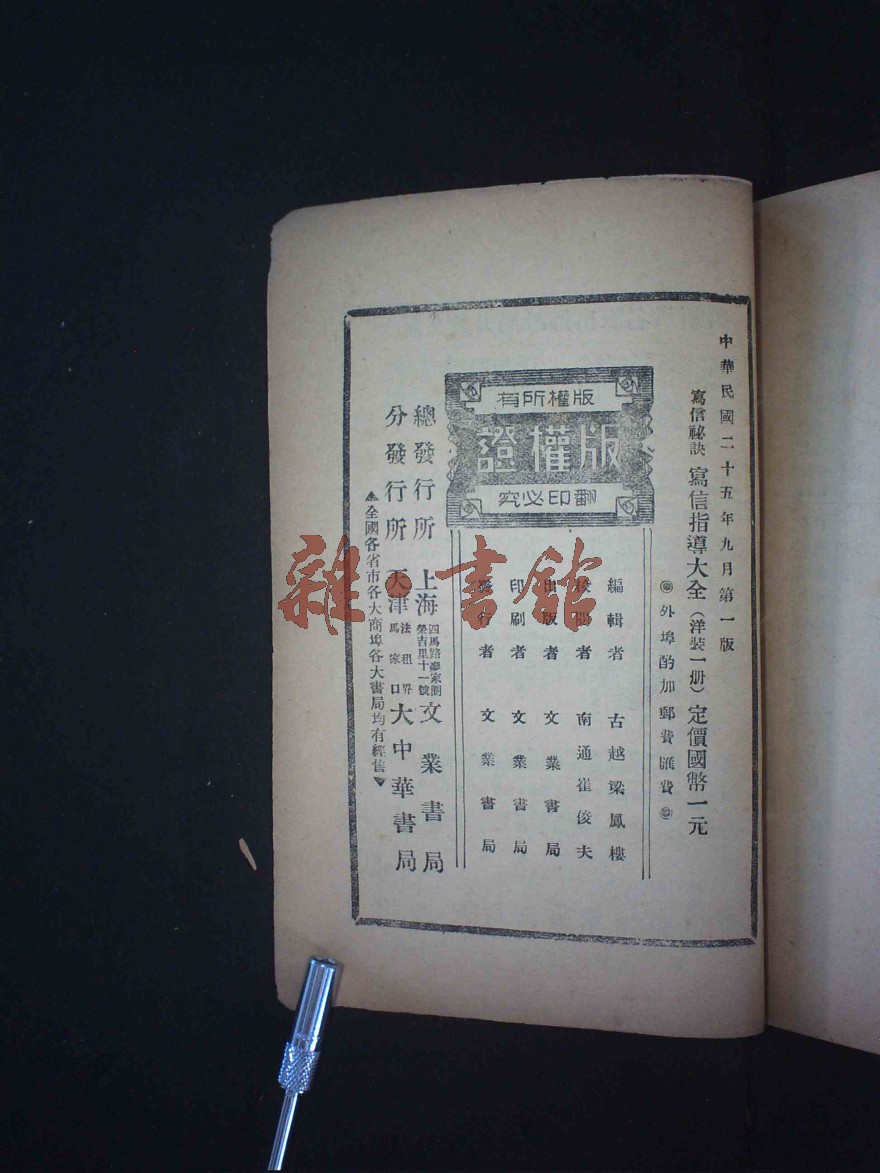 中華民國二十五年九月第一版
寫信祕訣 寫信指導大全(洋裝一册)定價國幣一元
外埠酌加郵費匯費
版權所有
版權證
翻印必究
編輯者 古越梁鳳樓
校閱者 南通崔俊夫
出版者 文業書局
印刷者 文業書局
發行者 文業書局
總發行所 上海 四馬路麥家圈 榮吉里十一號 文業書局
分發行所 天津 法租界 馬家口 大中華書局
▲全國各省市各大商埠各大書局均有經售▼
雜·書館